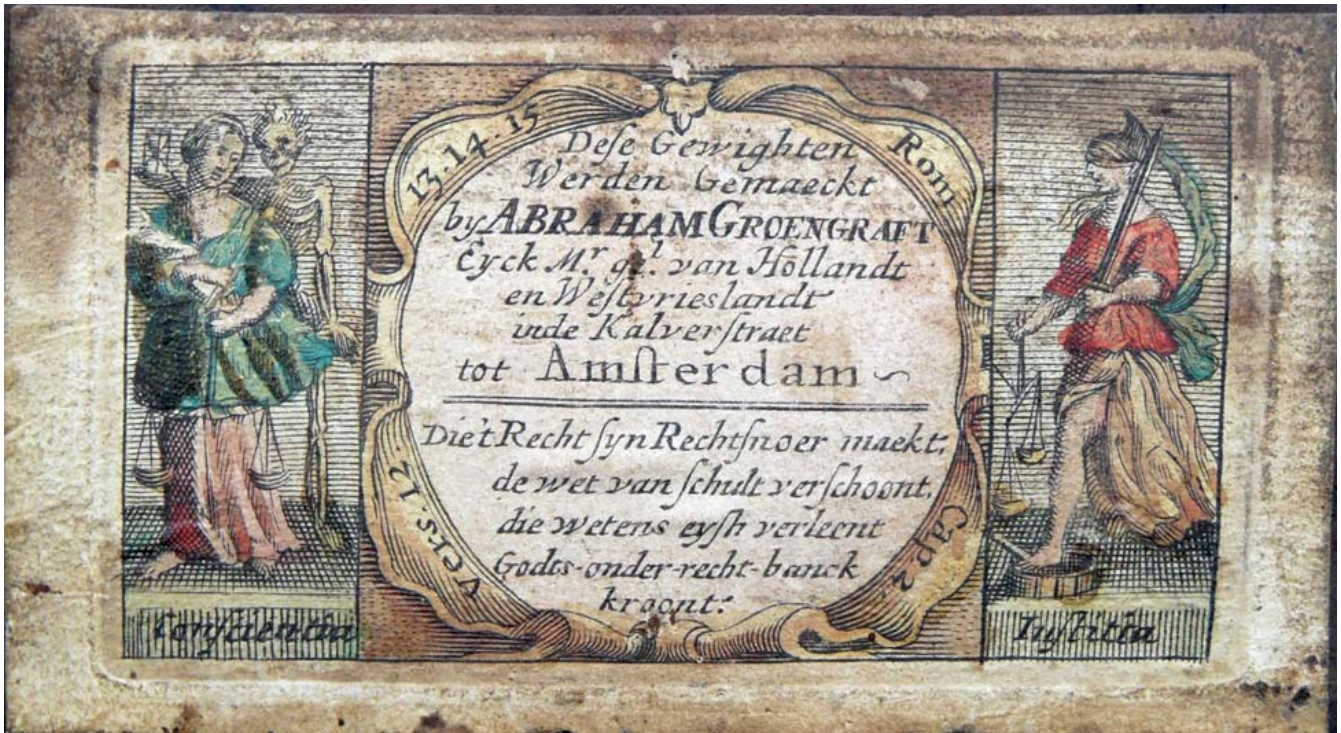 13. 14. 15
Rom
Dese Gewighten
Werden Gemaeckt
by ABRAHAM GROENGRAFT
Eyck Mr. gl. van Hollandt
en Westvrieslandt
inde Kalverstraet
tot Amsterdam
Die't Recht syn Rechtsnoer maekt,
de wet van schult verschoont,
die wetens eysh verleent
Godts-onder-recht-banck
kroont:
Vers. 12.
Cap 2.
Consientia
Iustitia